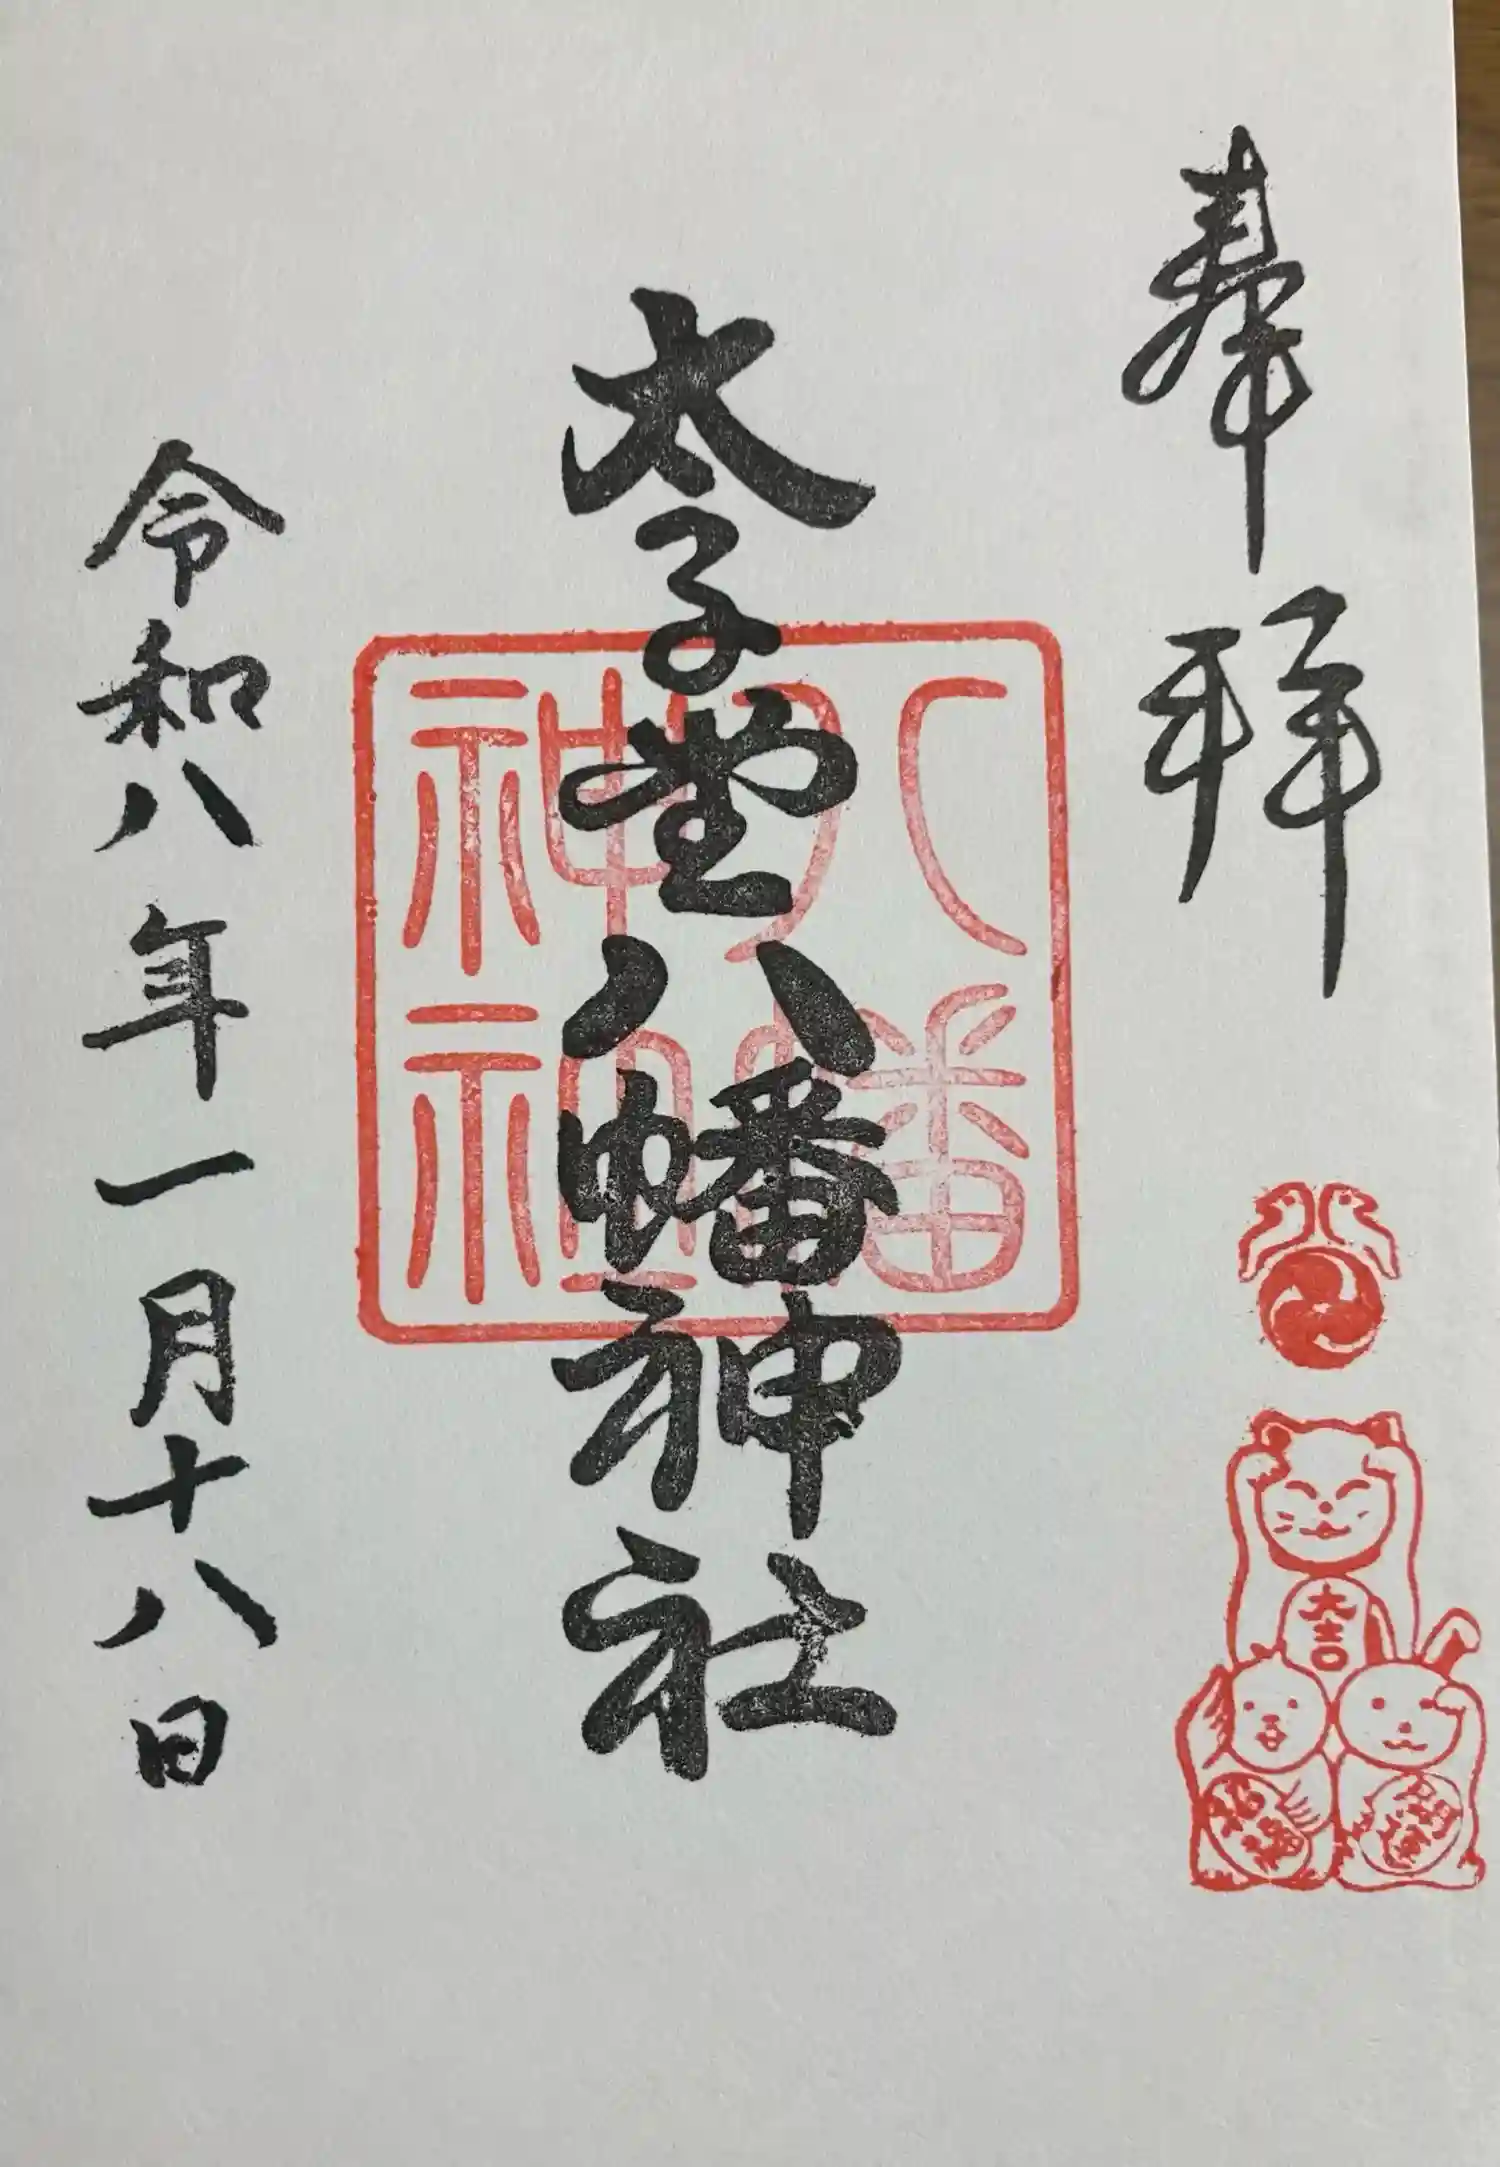 奉拝
大吉
開運
招福
太子堂八幡神社
八幡
神社
令和八年一月十八日